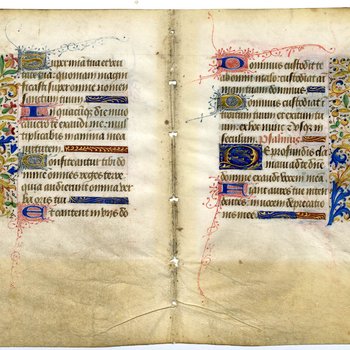 Super mīa tua et veri
tate tua quoniam magni
ficasti super omne nomen
sanctum
In quacūq; die inuo
cauero te exaudi me mul
tiplicabis in anima mea
virtutem
Confiteantur tibi do
mine omnes reges terre
quia audierunt omnia ver
ba oris tui
Et cantent in viis do
Dominus custodit te
ab omni malo custodiat
Dominus custodiat in
troitum tuum et exitum tu
um ex hoc nunc et vsq; in
seculum Psalmus
De profundis cla
maui ad te dn̄e
domine exaudi vocem mea
Fiant aures tue inten
dentes in vocem deprecatio
nis mee